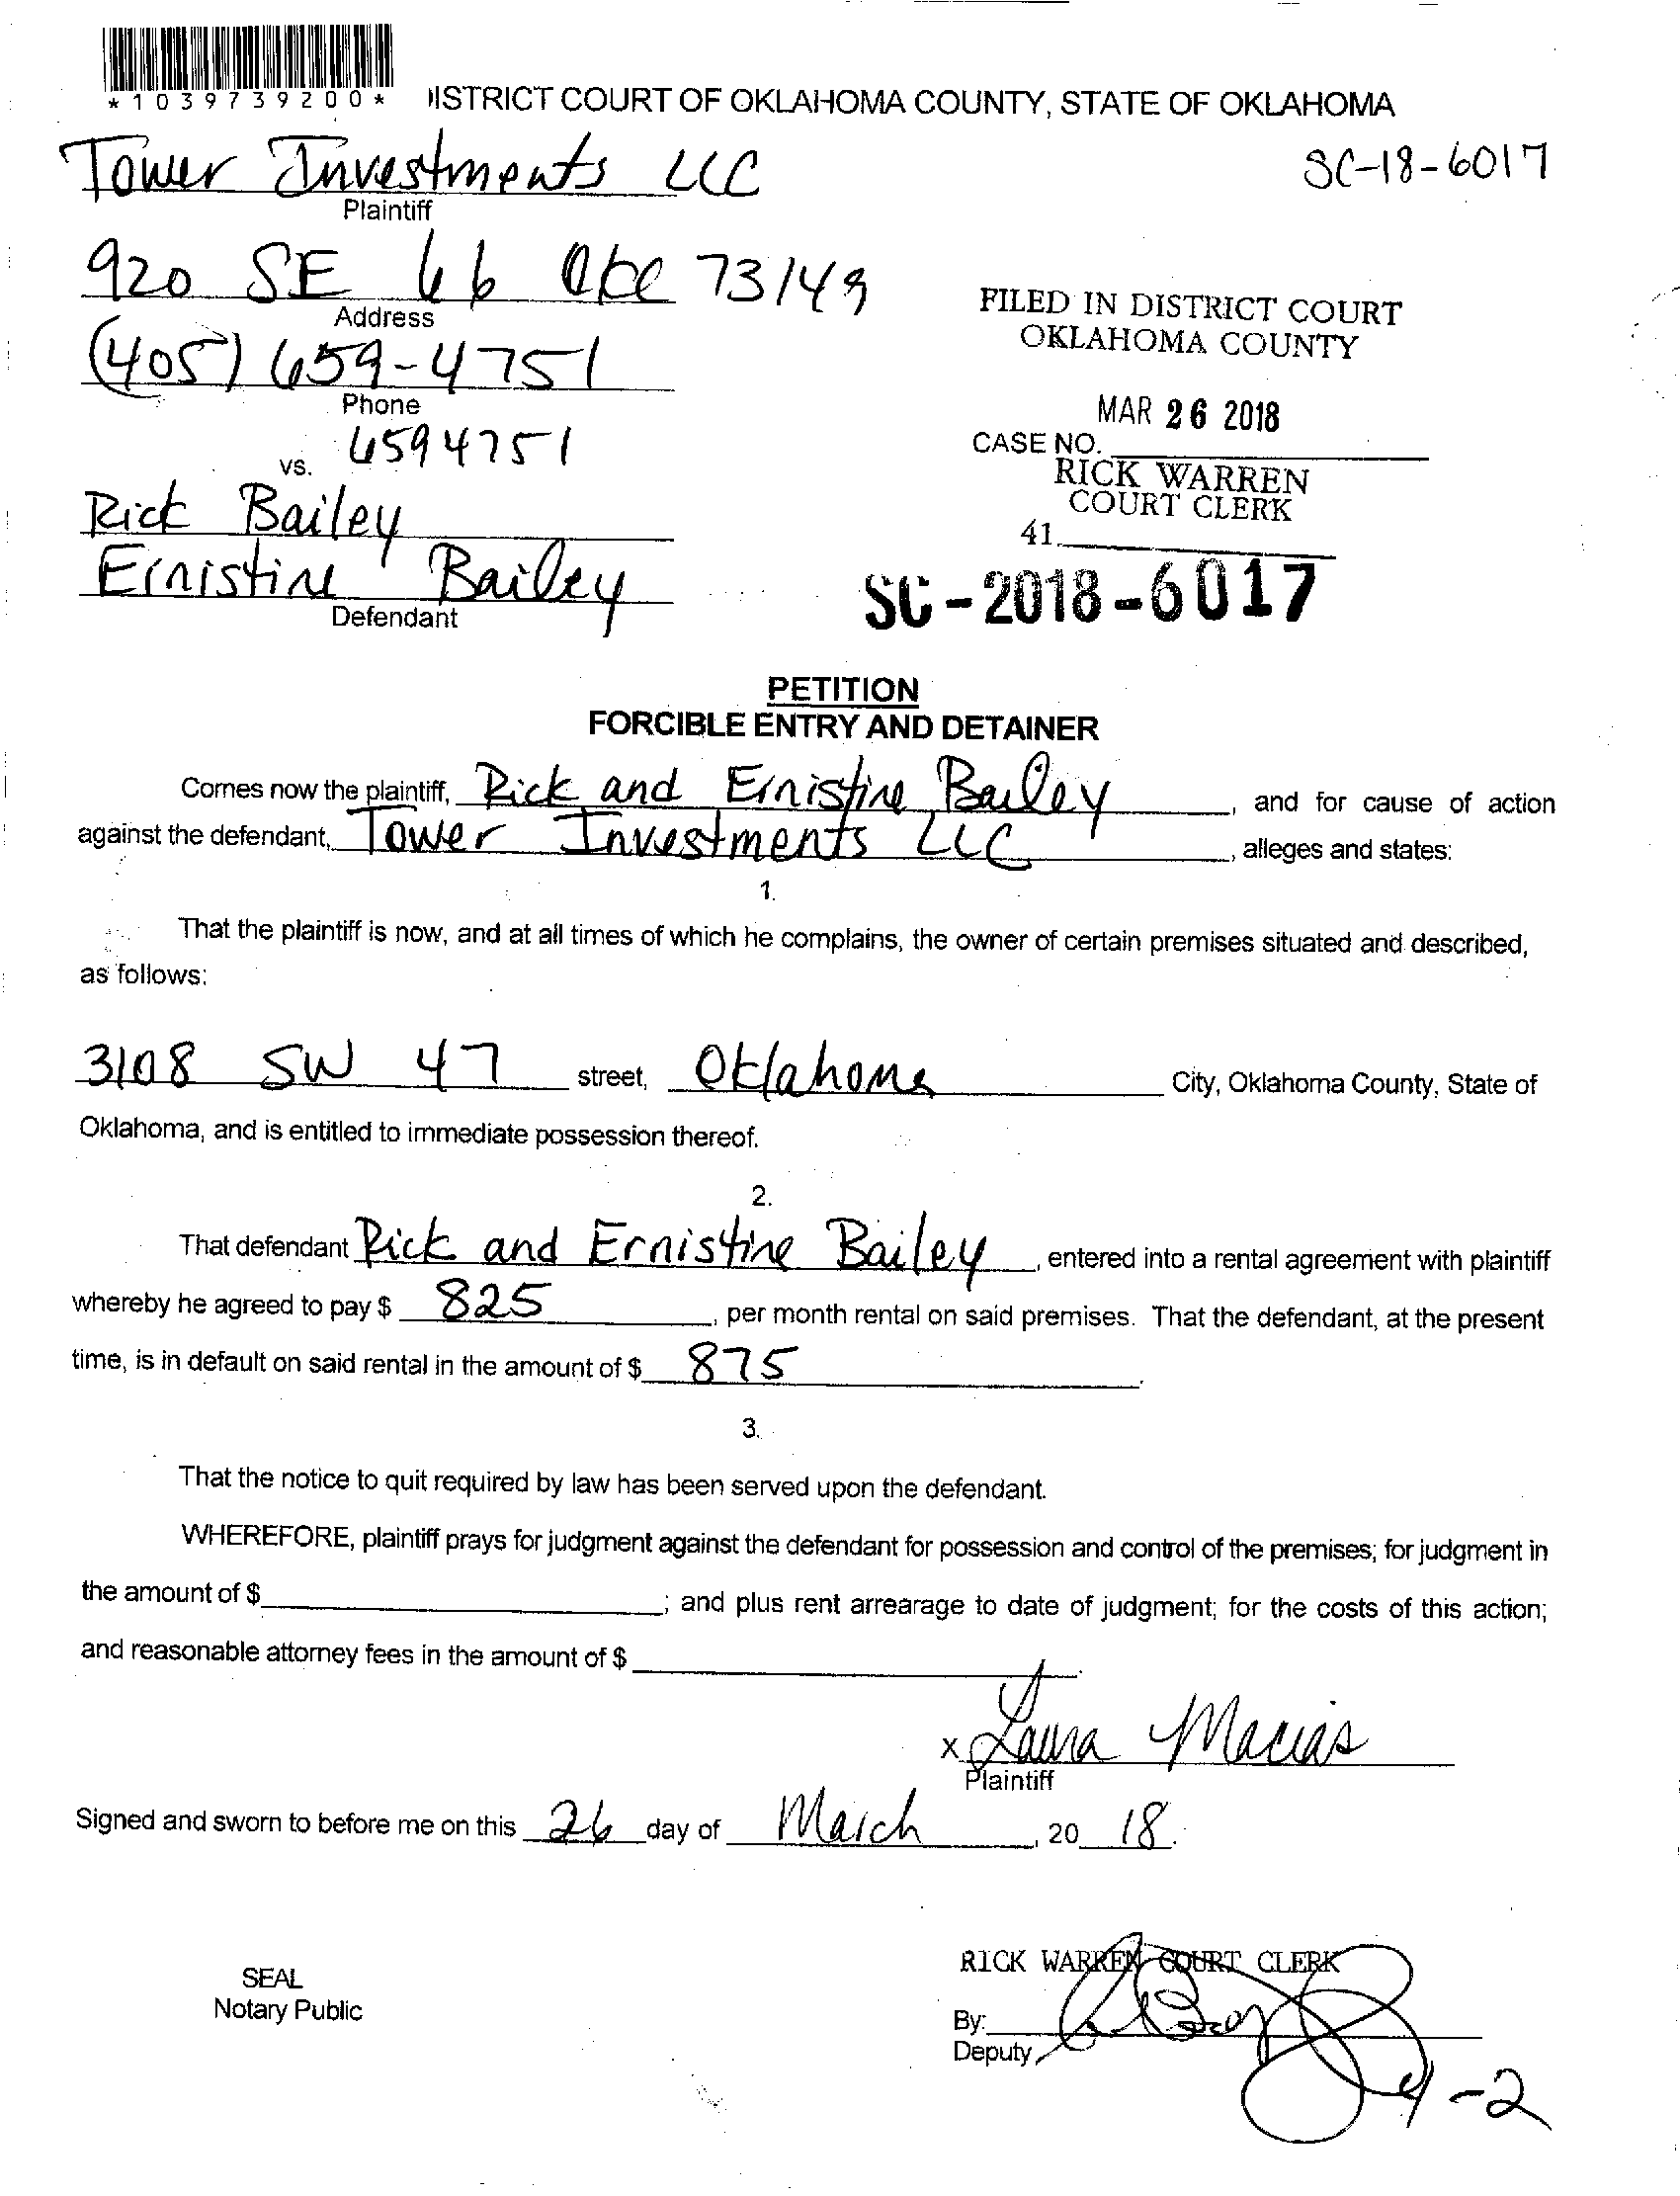 *1039739200*
DISTRICT COURT OF OKLAHOMA COUNTY, STATE OF OKLAHOMA
Tower Investments LLC
SC-18-6017
Plaintiff
920 SE 66 OKC 73149
Address
FILED IN DISTRICT COURT
OKLAHOMA COUNTY
(405) 659-4751
Phone
MAR 26 2018
CASE NO.
6594751
vs.
RICK WARREN
COURT CLERK
Rick Bailey
41
Ernistine Bailey
Defendant
SC-2018-6017
PETITION
FORCIBLE ENTRY AND DETAINER
Comes now the plaintiff, Rick and Ernistine Bailey, and for cause of action
against the defendant, Tower Investments LLC, alleges and states:
1.
That the plaintiff is now, and at all times of which he complains, the owner of certain premises situated and described,
as follows:
3108 SW 47 street, Oklahoma City, Oklahoma County, State of
Oklahoma, and is entitled to immediate possession thereof.
2.
That defendant Rick and Ernistine Bailey, entered into a rental agreement with plaintiff
whereby he agreed to pay $ 825, per month rental on said premises. That the defendant, at the present
time, is in default on said rental in the amount of $ 875.
3.
That the notice to quit required by law has been served upon the defendant.
WHEREFORE, plaintiff prays for judgment against the defendant for possession and control of the premises; for judgment in
the amount of $; and plus rent arrearage to date of judgment; for the costs of this action;
and reasonable attorney fees in the amount of $.
x Laura Macias
Plaintiff
Signed and sworn to before me on this 26 day of March, 20 18.
RICK WARREN COURT CLERK
SEAL
Notary Public
By:
Deputy
4-2